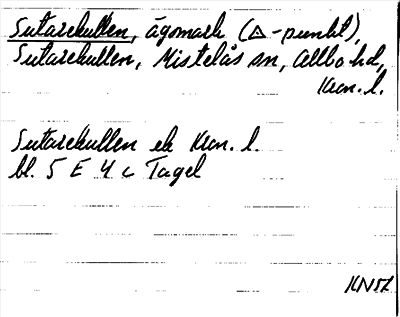 Sutarekullen, ägomark (△-punkt),
Sutarekullen, Mistelås sn, Allbo hd,
Kron. l.
Sutarekullen ek Kron. l.
bl. 5 E 4 c Tagel